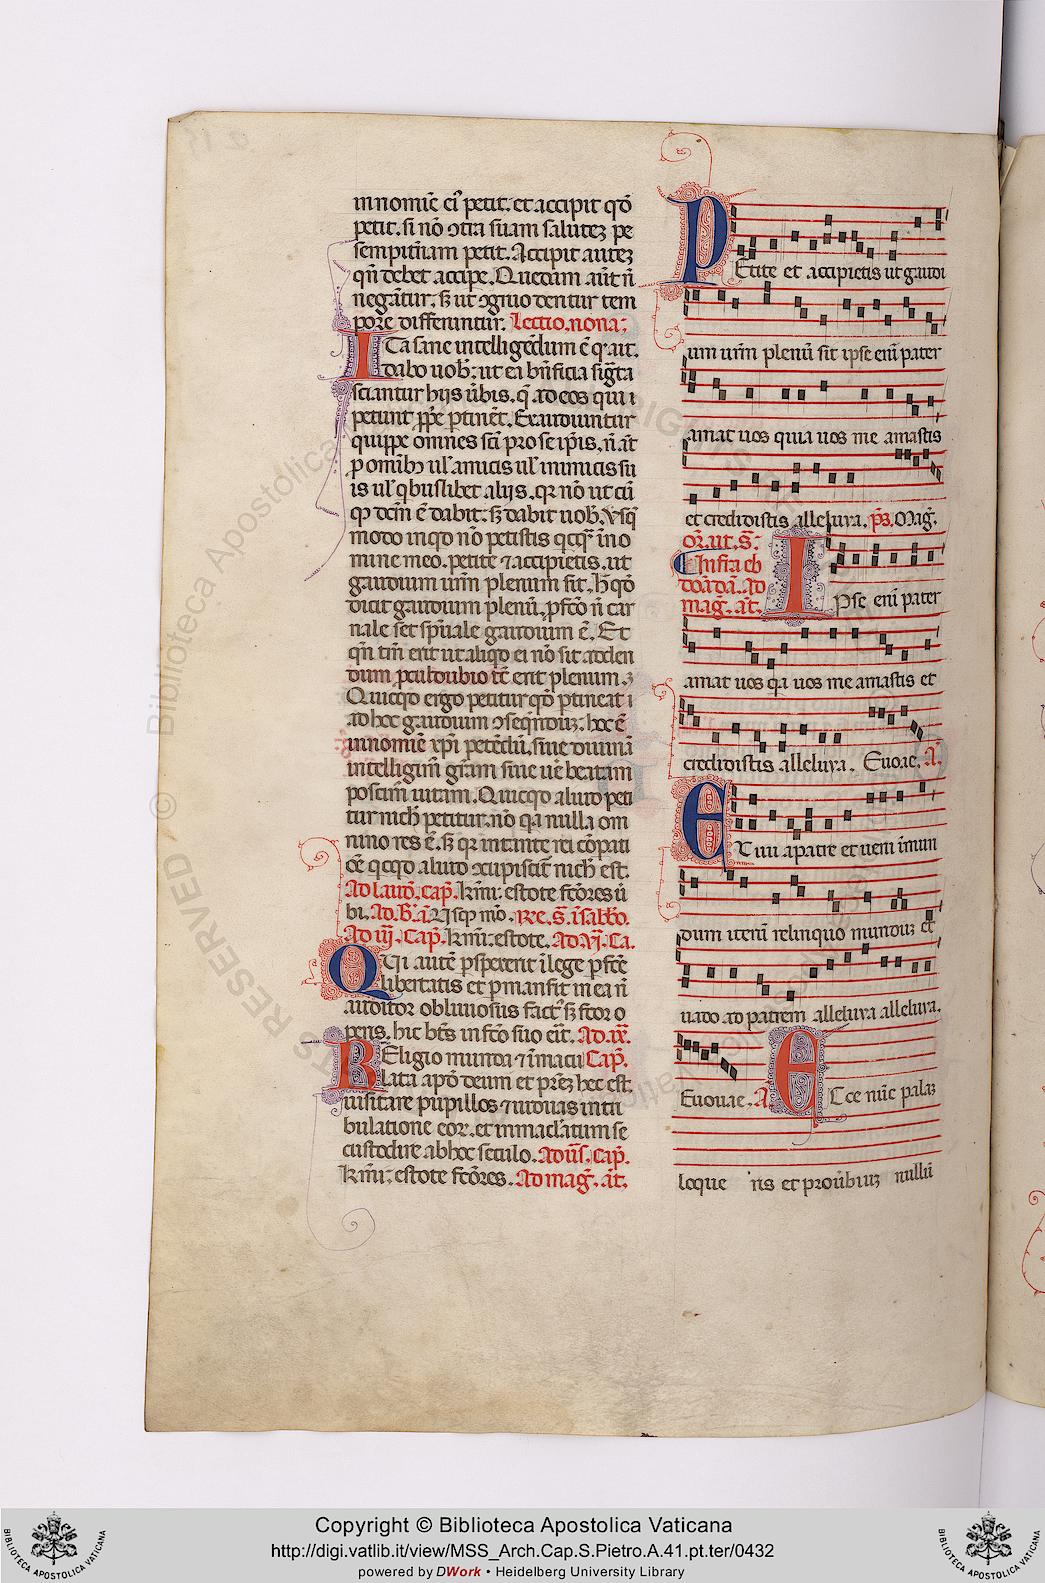 in nomīe eī petit. et accipit qđ
petit. si nō ↄtra suam salutez pe
sempit̄nam petit. Accipit autez
qn̄ debet accipe. Quedam aūt n̄
negātur. sꝫ ut ↄgruo dentur tem
pore differuntur. Lectio. nona:
ITa sane intelligēdum ē qꝛ ait.
dabo uob̄: ut ea bn̄ficia sig̅ta
sciantur hijs ūbis. q̄ ad eos qui
petunt pp̄e ptinēt. Exaudiuntur
quippe omnes sc̄i pro se ip̄is. n̄ aūt
ꝓ omībꝫ ul̓ amicis ul̓ inimicis su
is ul̓ qbuslibet alijs. qꝛ nō ut cū
qꝫ dc̄m ē dabit. sꝫ dabit uob̄. Vsqꝫ
modo inqđ nō petistis qcq̄ ī no
mine meo. petite ⁊ accipietis. ut
gaudium ur̄m plenum sit. h̄ qđ
dicit gaudium plenū, ꝓfc̄o n̄ car
nale set sp̄uale gaudium ē. Et
qn̄ tm̄ erit ut aliqđ ei nō sit adden
dum proculdubio tc̄ erit plenum.
Quicqđ ergo petitur qđ ptineat
ad hoc gaudium ↄseq̄nduz: hoc ē
in nomīe xp̄i petēdū. sine diuinā
intelligim̄ gr̄am siue ue beatam
poscim̄ uitam. Quicqđ aliud peti
tur nich̄ petitur. nō qa nulla om
nino res ē. sꝫ qꝛ in tante rei ↄꝑati
ōe qcqđ aliud ↄcupiscit̄ nich̄ est.
Ad laud̄. cap̄. kr̄mi: estote fc̄ores ū
bi. Ad. B̄. a̅ Vsqꝫ mō. Re. S̄. ī sabb̄o.
Ad iij. Cap̄. kr̄mi: estote. Ad. vj. Ca.
QUi autē ꝑspexerit ī lege ꝑfc̄e
libertatis et ꝑmanserit in ea n̄
auditor obliuiosus fact̓ sꝫ fc̄or o
peris. hic bt̄s in fc̄o suo eīt. Ad. ix.
REligio munda ⁊ īmacu Cap̄.
lata apđ deum et pr̄ez hec est
uisitare pupillos ⁊ uiduas in tri
bulatione eoꝝ. et inmacl̄atum se
custodire ab hoc seculo. Ad us̄. Cap̄.
kr̄mi: estote fc̄ores. Ad mag̅. at̄.
PEtite et accipietis ut gaudi
um ur̄m plenū sit ipse enī pater
amat uos quia uos me amastis
et credidistis alleluya. ps̄. Mag̅.
or̄. ut. S̄.
Infra eb
doā da. ad
mag̅. at̄. IPse eni pater
amat uos qa uos me amastis et
credidistis alleluya. Euoae. A̅.
EXiui a patre et ueni ī mun
dum iterū relinquo munduz et
uado ad patrem alleluya alleluya.
Euouae. A̅. ECce nūc palaz
loque ris et prouībiuz nullū
Copyright © Biblioteca Apostolica Vaticana
http://digi.vatlib.it/view/MSS_Arch.Cap.S.Pietro.A.41.pt.ter/0432
powered by DWork • Heidelberg University Library
BIBLIOTECA APOSTOLICA VATICANA
BIBLIOTECA APOSTOLICA VATICANA